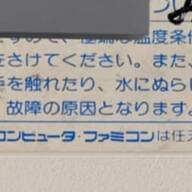 つい
ますので、極端な温度条件
をさけてください。また、
手を触れたり、水にぬらし
故障の原因となります。
コンピュータ・ファミコンは任天